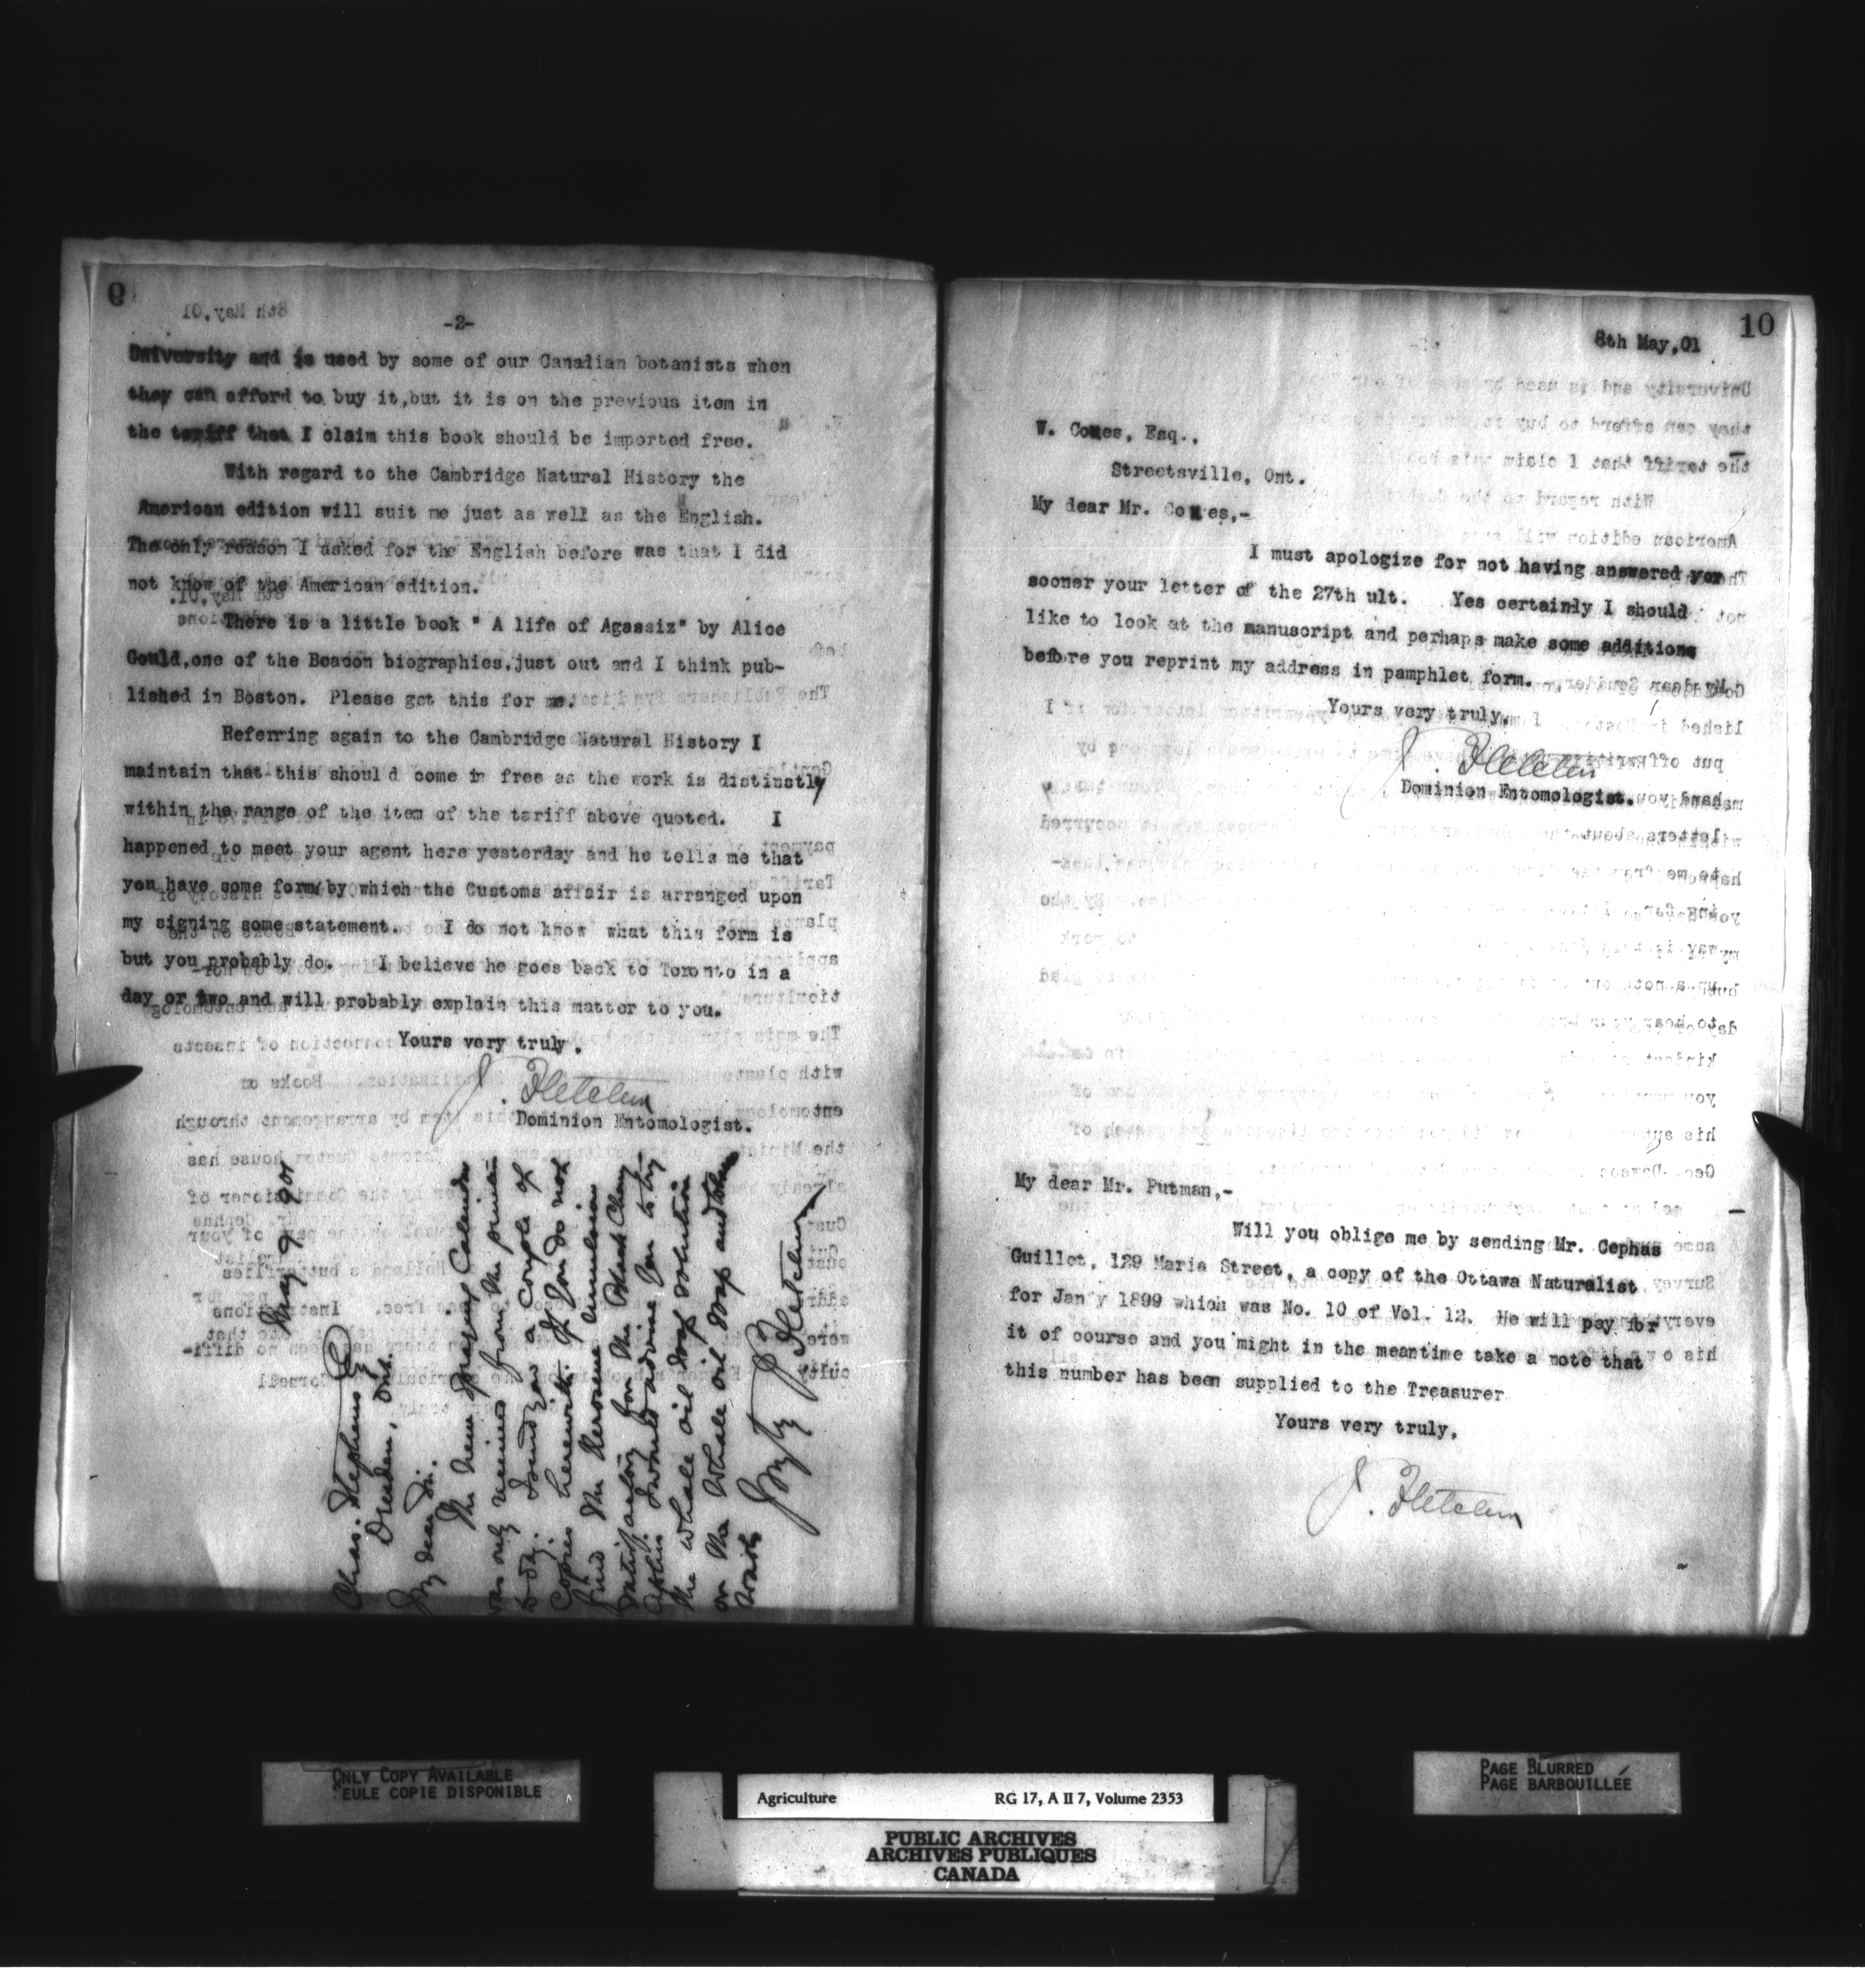 9
-2-
University and is used by some of our Canadian botanists when
they can afford to buy it, but it is on the previous item in
the tariff that I claim this book should be imported free.
With regard to the Cambridge Natural History the
American edition will suit me just as well as the English.
The only reason I asked for the English before was that I did
not know of the American edition.
There is a little book " A life of Agassiz" by Alice
Gould, one of the Beacon biographies, just out and I think pub-
lished in Boston. Please get this for me.
Referring again to the Cambridge Natural History I
maintain that this should come in free as the work is distinctly
within the range of the item of the tariff above quoted. I
happened to meet your agent here yesterday and he tells me that
you have some form by which the Customs affair is arranged upon
my signing some statement. I do not know what this form is
but you probably do. I believe he goes back to Toronto in a
day or two and will probably explain this matter to you.
Yours very truly,
J. Fletcher
Dominion Entomologist.
May 9 1901
Chas. Stephens Esq
Dresden, Ont.
My dear Sir.
The new Spraying Calendar
was only received from the printer
to day. I send you a couple of
copies herewith. If you do not
find the Kerosene Emulsion
satisfactory for the Black Cherry
Aphis I would advise you to try
the whale oil soap solution
or the Whale oil soap and
J. Fletcher
10
8th May, 01
W. Cotes, Esq.,
Streetsville, Ont.
My dear Mr. Cotes,-
I must apologize for not having answered
sooner your letter of the 27th ult. Yes certainly I should
like to look at the manuscript and perhaps make some additions
before you reprint my address in pamphlet form.
Yours very truly,
J. Fletcher
Dominion Entomologist.
My dear Mr. Putman,-
Will you oblige me by sending Mr. Cephas
Guillet, 129 Maria Street, a copy of the Ottawa Naturalist
for Jan'y 1899 which was No. 10 of Vol. 12. He will pay for
it of course and you might in the meantime take a note that
this number has been supplied to the Treasurer
Yours very truly,
J. Fletcher
ONLY COPY AVAILABLE
SEULE COPIE DISPONIBLE
Agriculture RG 17, A II 7, Volume 2353
PUBLIC ARCHIVES
ARCHIVES PUBLIQUES
CANADA
PAGE BLURRED
PAGE BARBOUILLÉE